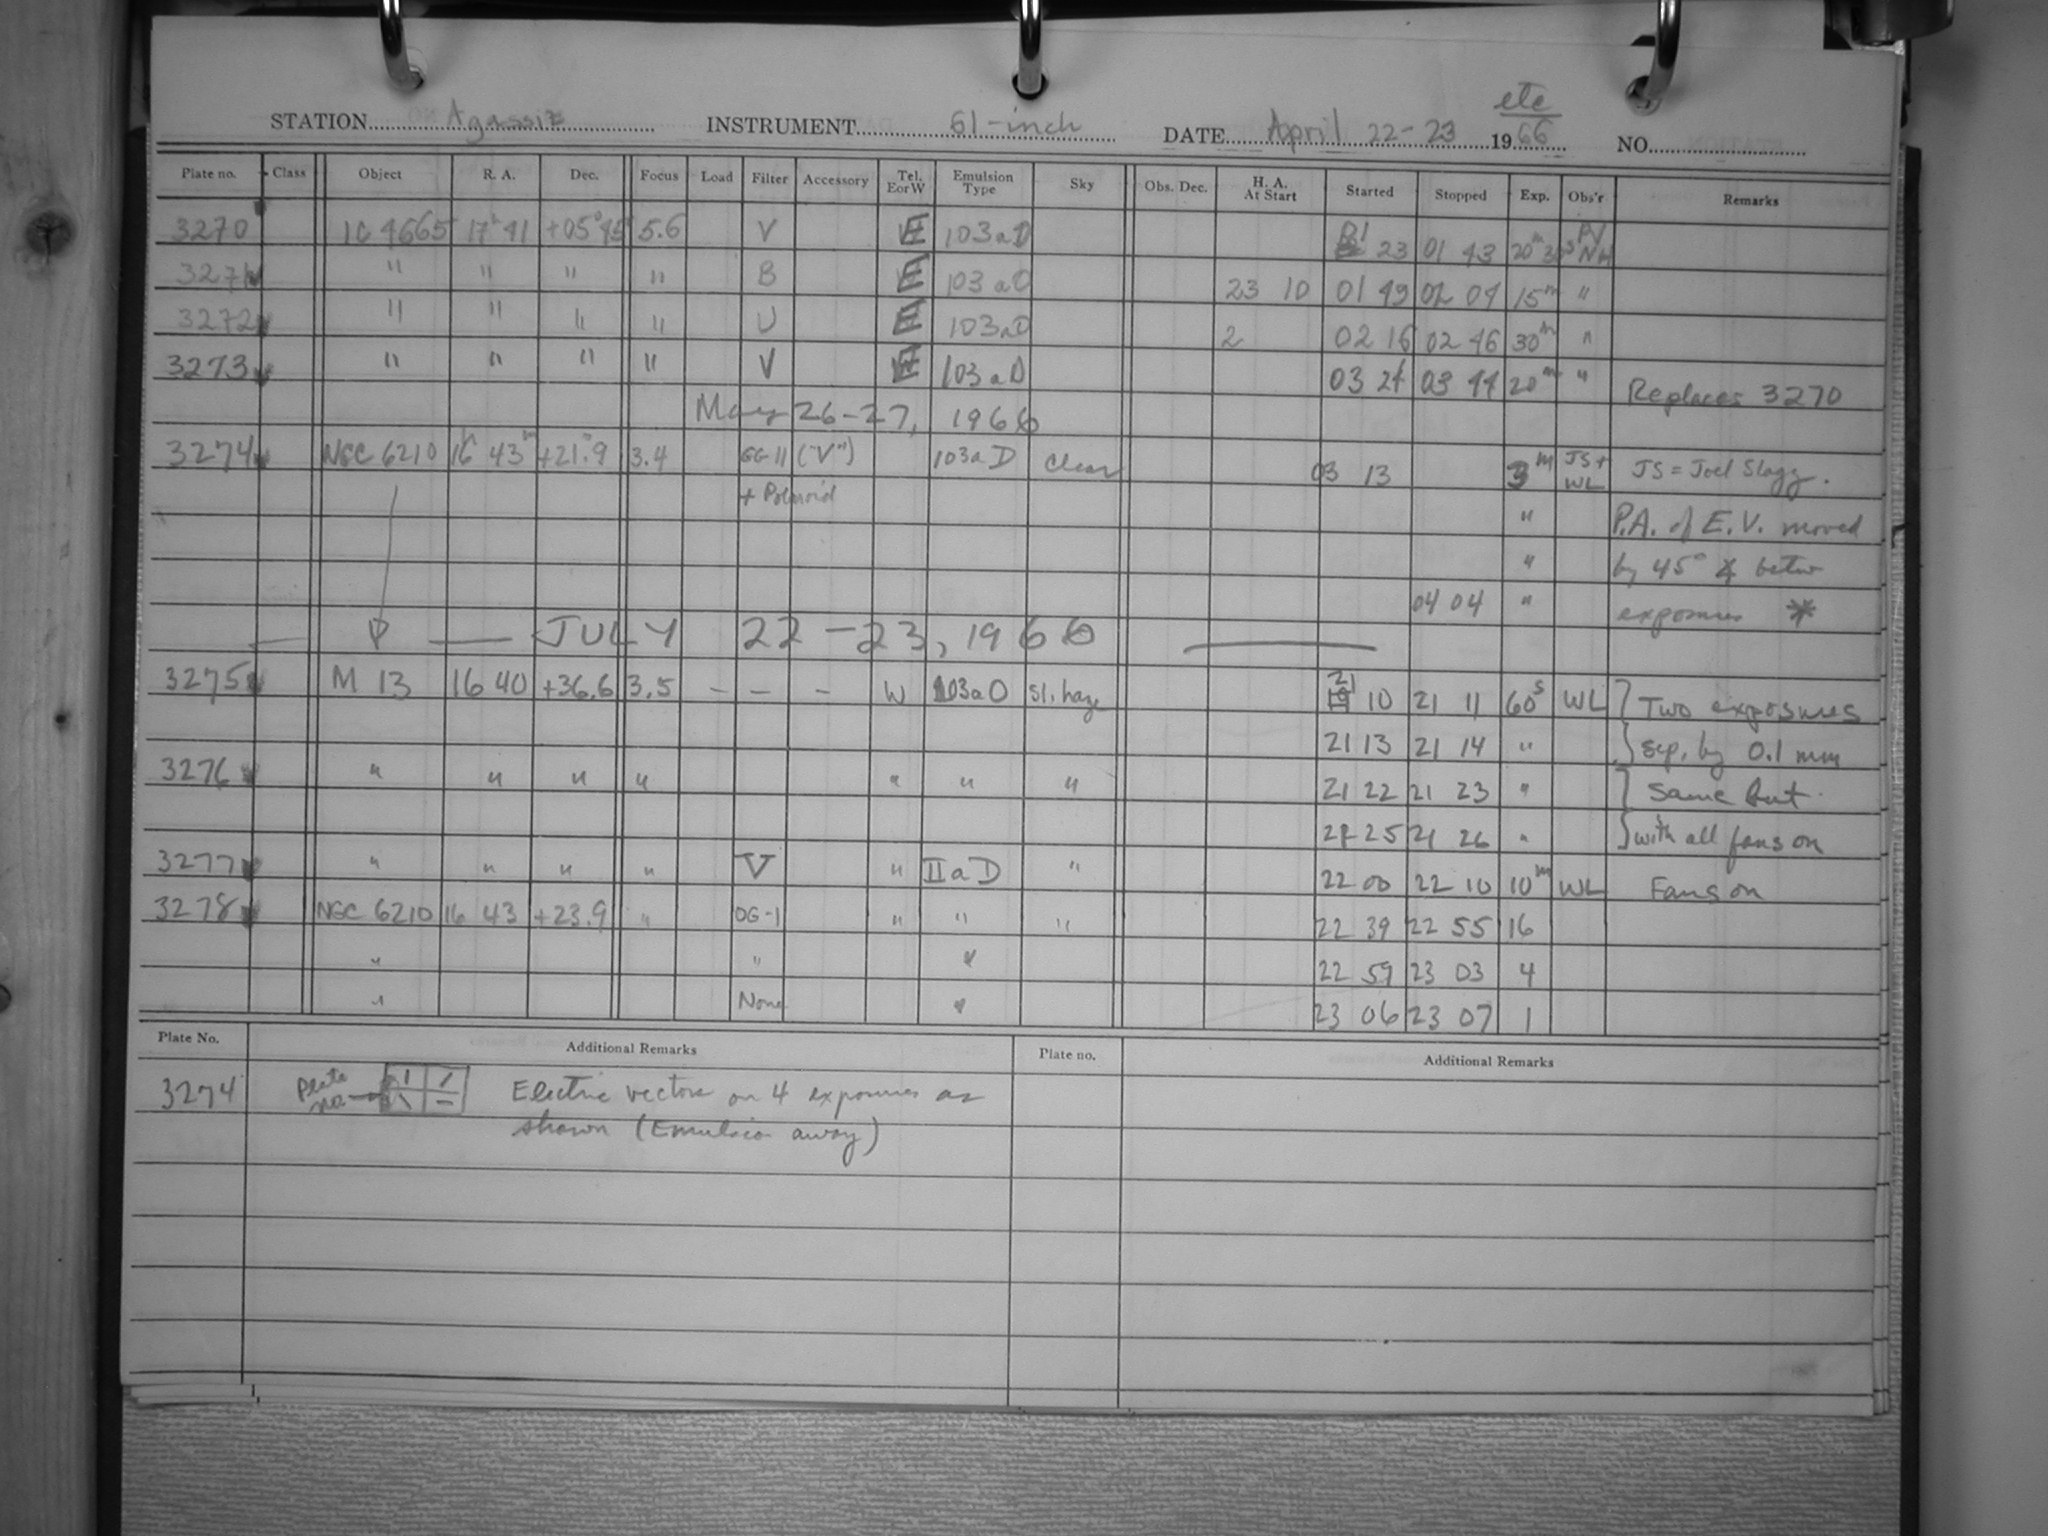 etc
STATION Agassiz INSTRUMENT 61-inch DATE April 22-23 1966 NO.
Plate no. Class Object R. A. Dec. Focus Load Filter Accessory Tel. E or W Emulsion Type Sky Obs. Dec. H. A. At Start Started Stopped Exp. Obs'r Remarks
3270 IC 4665 17h 41 +05° 45 5.6 V E 103aD 01 23 01 43 20m
3271 " " " " B E 103aO 23 10 01 49 02 04 15m "
3272 " " " " U E 103aO 2 02 16 02 46 30m "
3273 " " " " V E 103aD 03 24 03 44 20m " Replaces 3270
May 26-27, 1966
3274 NGC 6210 16h 43m +21°.9 3.4 GG11 ("V") 103aD Clear 03 13 3m JS + WL JS = Joel Slagg.
+ Polaroid " P.A. of E.V. moved
" by 45° betw
04 04 " exposures *
JULY 22-23, 1966
3275 M 13 16 40 +36.6 3.5 - - - W 103aO Sl. haze 21 10 21 11 60s WL Two exposures
21 13 21 14 " sep. by 0.1 mm
3276 " " " " " " " 21 22 21 23 " Same but
21 25 21 26 " with all fans on
3277 " " " " V " IIaD " 22 00 22 10 10m WL Fans on
3278 NGC 6210 16 43 +23.9 " OG-1 " " " 22 39 22 55 16
" " " 22 59 23 03 4
" None " 23 06 23 07 1
Plate No. Additional Remarks Plate no. Additional Remarks
3274 Plate no. Electric vectors on 4 exposures as
shown (Emulsion away)